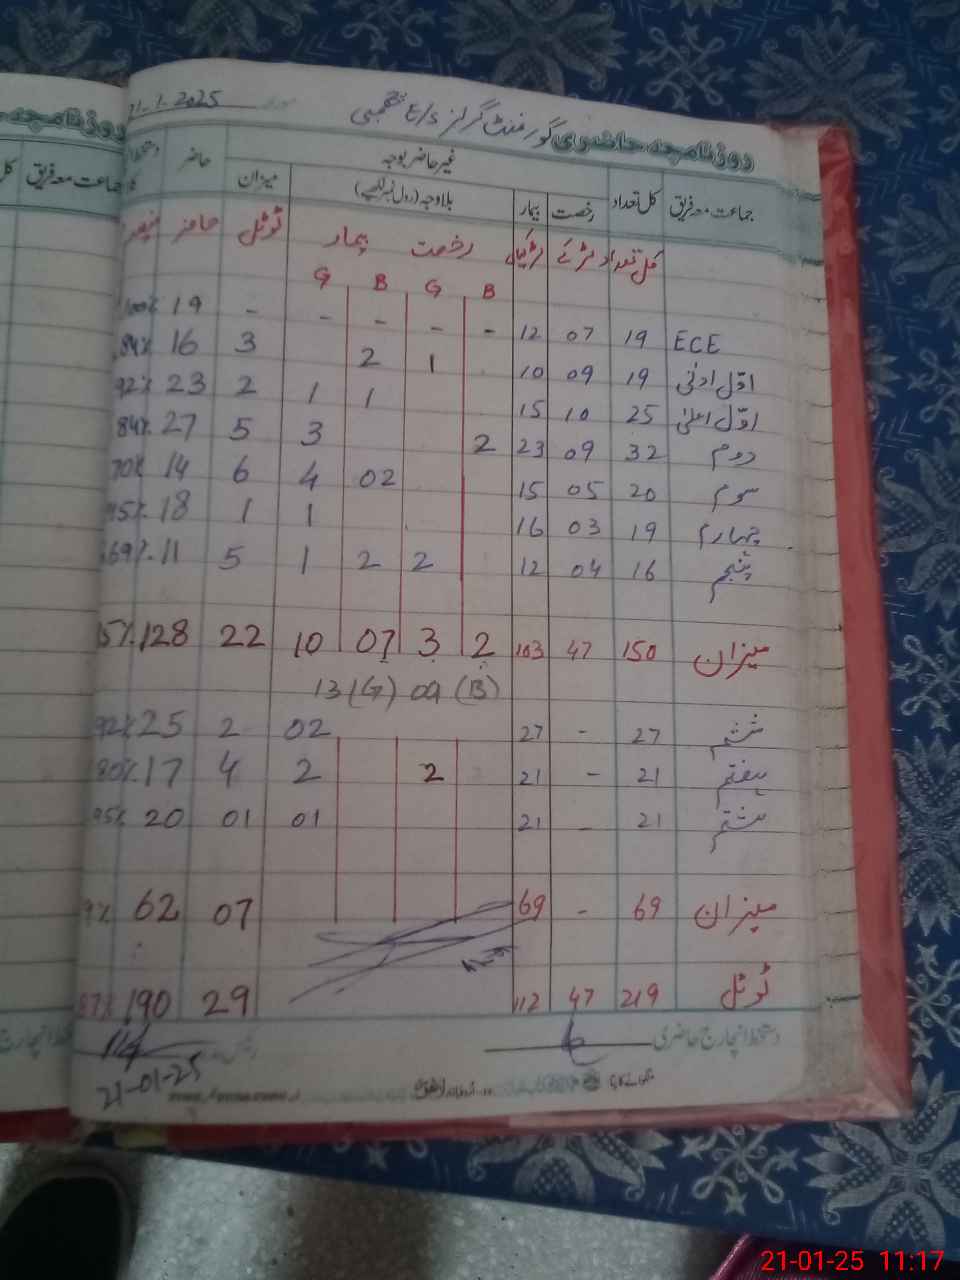 روزنامچہ حاضری گورنمنٹ گرلز E/S 21-1-2025
جماعت معہ فریق کل تعداد رخصت بیمار غیر حاضر بوجہ بلاوجہ میزان حاضر
کل تعداد لڑکے لڑکیاں رخصت بیمار ٹوٹل حاضر فیصد
B G B G
ECE 19 07 12 - - - - - 19 100%
اوّل ادنٰی 19 09 10 1 2 3 16 84%
اوّل اعلیٰ 25 10 15 1 1 2 23 92%
دوم 32 09 23 2 3 5 27 84%
سوم 20 05 15 02 4 6 14 70%
چہارم 19 03 16 1 1 18 95%
پنجم 16 04 12 2 2 1 5 11 69%
میزان 150 47 103 2 3 07 10 22 128
13(G) 09 (B)
ششم 27 - 27 02 2 25 92%
ہفتم 21 - 21 2 2 4 17 80%
ہشتم 21 - 21 01 01 20 95%
میزان 69 - 69 07 62
ٹوٹل 219 47 112 29 190 87%
دستخط انچارج حاضری
21-01-25
جماعت معہ فریق
21-01-25 11:17